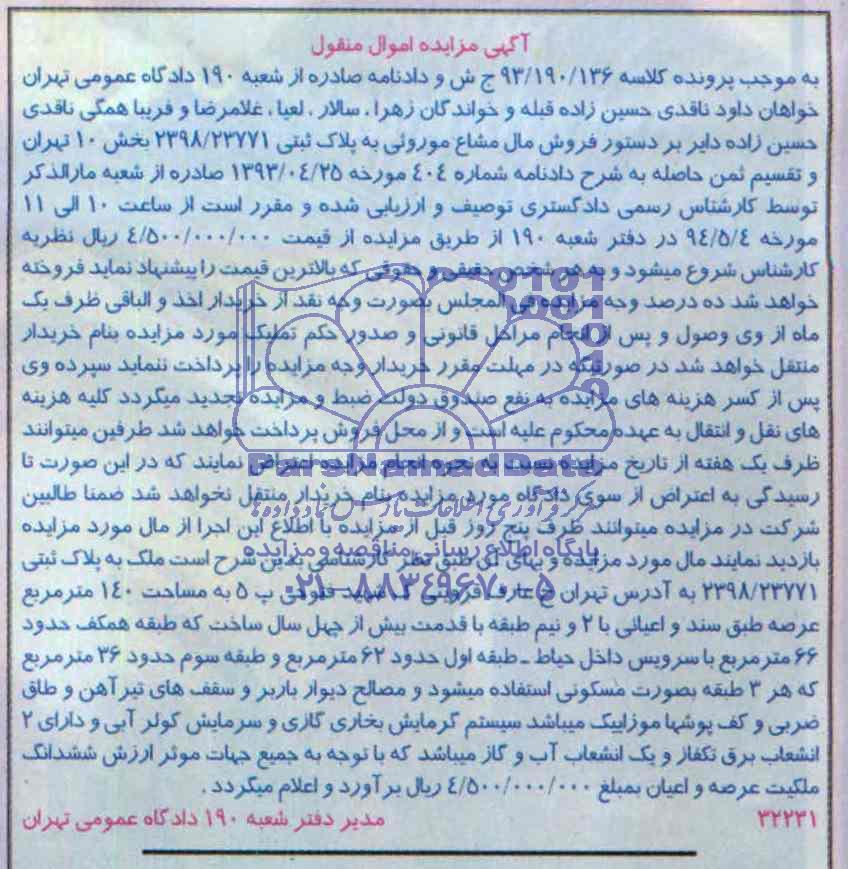 آگهی مزایده اموال منقول
به موجب پرونده کلاسه ۹۳/۱۹۰/۱۳۶ ج ش و دادنامه صادره از شعبه ۱۹۰ دادگاه عمومی تهران
خواهان داود ناقدی حسین زاده قبله و خواندگان زهرا ، سالار ، لعیا ، غلامرضا و فریبا همگی ناقدی
حسین زاده دایر بر دستور فروش مال مشاع موروثی به پلاک ثبتی ۲۳۹۸/۲۳۷۷۱ بخش ۱۰ تهران
و تقسیم ثمن حاصله به شرح دادنامه شماره ۴۰۴ مورخه ۱۳۹۳/۰۴/۲۵ صادره از شعبه مارالذکر
توسط کارشناس رسمی دادگستری توصیف و ارزیابی شده و مقرر است از ساعت ۱۰ الی ۱۱
مورخه ۹۴/۵/۴ در دفتر شعبه ۱۹۰ از طریق مزایده از قیمت ۴/۵۰۰/۰۰۰/۰۰۰ ریال نظریه
کارشناس شروع میشود و به هر شخص حقیقی و حقوقی که بالاترین قیمت را پیشنهاد نماید فروخته
خواهد شد ده درصد وجه مزایده فی المجلس بصورت وجه نقد از خریدار اخذ و الباقی ظرف یک
ماه از وی وصول و پس از انجام مراحل قانونی و صدور حکم تملیک مورد مزایده بنام خریدار
منتقل خواهد شد در صورتیکه در مهلت مقرر خریدار وجه مزایده را پرداخت ننماید سپرده وی
پس از کسر هزینه های مزایده به نفع صندوق دولت ضبط و مزایده تجدید میگردد کلیه هزینه
های نقل و انتقال به عهده محکوم علیه است و از محل فروش پرداخت خواهد شد طرفین میتوانند
ظرف یک هفته از تاریخ مزایده نسبت به نحوه انجام مزایده اعتراض نمایند که در این صورت تا
رسیدگی به اعتراض از سوی دادگاه مورد مزایده بنام خریدار منتقل نخواهد شد ضمنا طالبین
شرکت در مزایده میتوانند ظرف پنج روز قبل از مزایده با اطلاع این اجرا از مال مورد مزایده
بازدید نمایند مال مورد مزایده و بهای آن طبق نظر کارشناسی بدین شرح است ملک به پلاک ثبتی
۲۳۹۸/۲۳۷۷۱ به آدرس تهران خ عارف قزوینی پ ۵ به مساحت ۱۴۰ مترمربع
عرصه طبق سند و اعیانی با ۲ و نیم طبقه با قدمت بیش از چهل سال ساخت که طبقه همکف حدود
۶۶ متر مربع با سرویس داخل حیاط ـ طبقه اول حدود ۶۲ متر مربع و طبقه سوم حدود ۳۶ متر مربع
که هر ۳ طبقه بصورت مسکونی استفاده میشود و مصالح دیوار باربر و سقف های تیرآهن و طاق
ضربی و کف پوشها موزاییک میباشد سیستم گرمایش بخاری گازی و سرمایش کولر آبی و دارای ۲
انشعاب برق تکفاز و یک انشعاب آب و گاز میباشد که با توجه به جمیع جهات موثر ارزش ششدانگ
ملکیت عرصه و اعیان بمبلغ ۴/۵۰۰/۰۰۰/۰۰۰ ریال برآورد و اعلام میگردد .
۳۲۲۳۱ مدیر دفتر شعبه ۱۹۰ دادگاه عمومی تهران
ParsNamadData
پایگاه اطلاع رسانی مناقصه و مزایده
۰۲۱-۸۸۳۴۹۶۷۰-۵